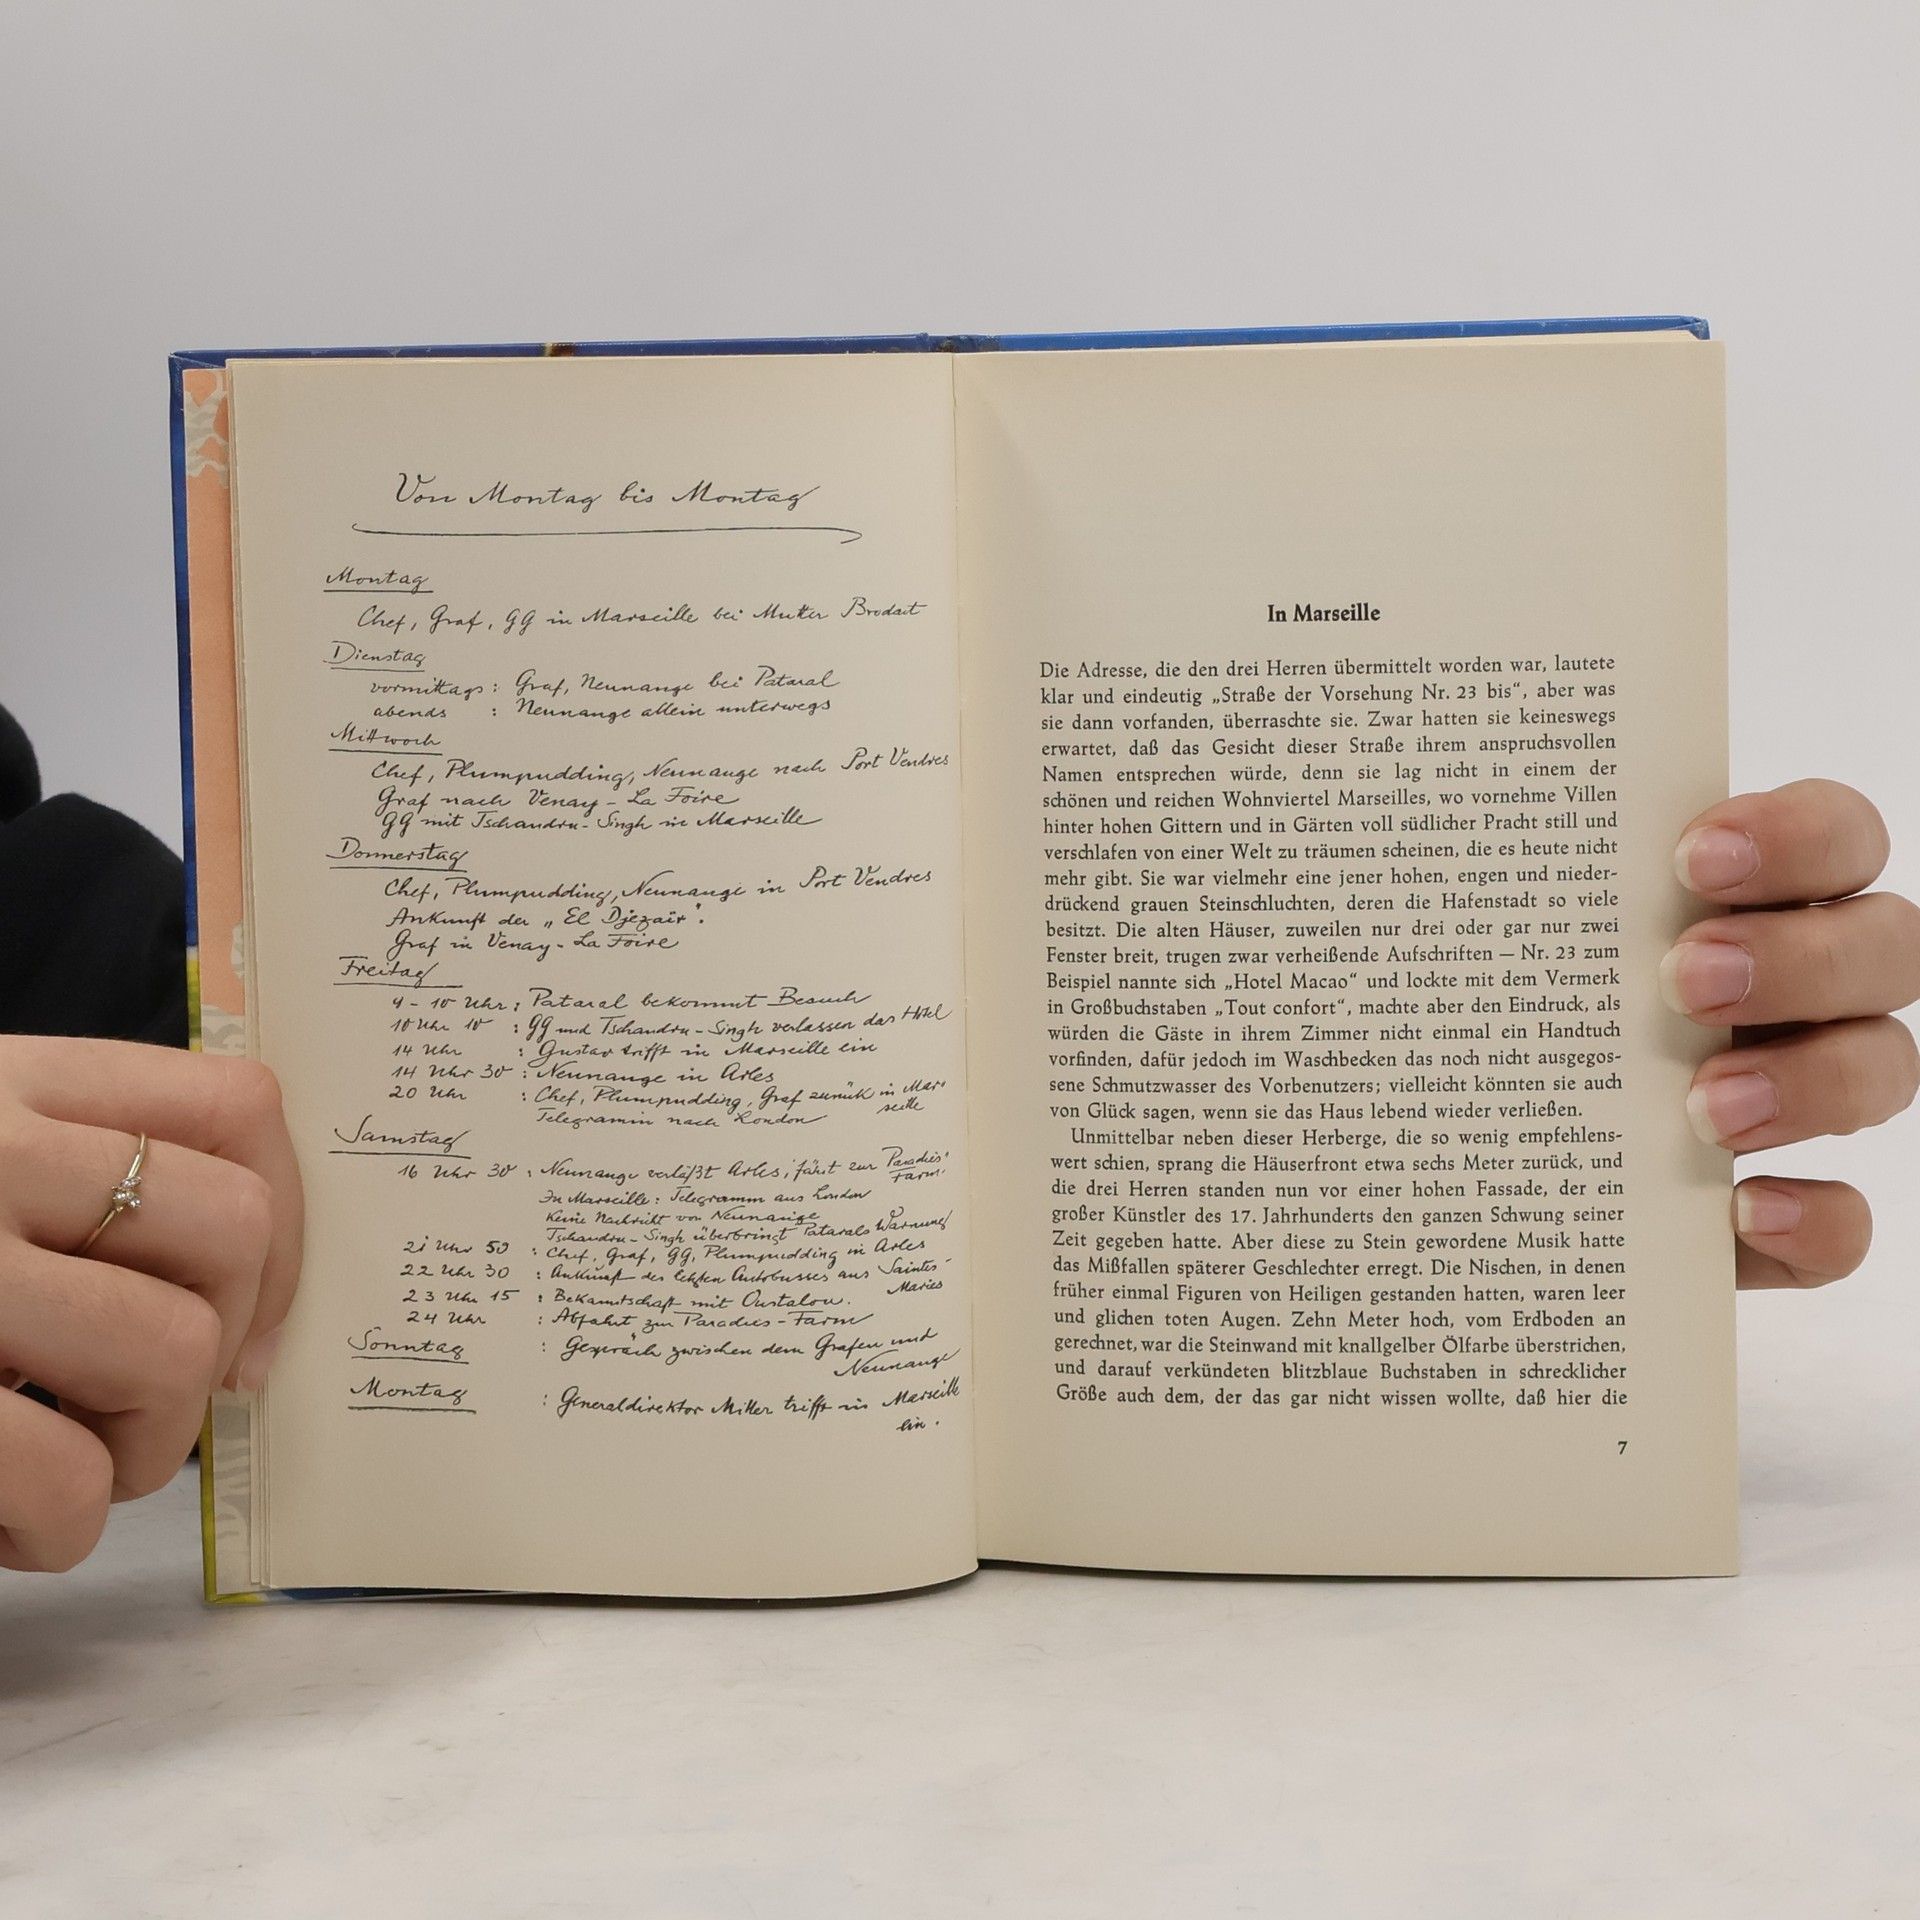 Von Montag bis Montag
Montag
Chef, Graf, GG in Marseille bei Mutter Brodait
Dienstag
vormittags : Graf, Neunauge bei Pataral
abends : Neunauge allein unterwegs
Mittwoch
Chef, Plumpudding, Neunauge nach Port Vendres
Graf nach Venay - La Foire
GG mit Tschandru-Singh in Marseille
Donnerstag
Chef, Plumpudding, Neunauge in Port Vendres
Ankunft der „El Djezair".
Graf in Venay - La Foire
Freitag
9 - 10 Uhr : Pataral bekommt Besuch
10 Uhr 10 : GG und Tschandru-Singh verlassen das Hotel
14 Uhr : Gustav trifft in Marseille ein
14 Uhr 30 : Neunauge in Arles
20 Uhr : Chef, Plumpudding, Graf zurück in Mar-
seille
Telegramm nach London
Samstag
16 Uhr 30 : Neunauge verläßt Arles, fährt zur Paradies-
Farm.
In Marseille : Telegramm aus London
Keine Nachricht von Neunauge
Tschandru-Singh überbringt Patarals Warnung
21 Uhr 50 : Chef, Graf, GG, Plumpudding in Arles
22 Uhr 30 : Ankunft des letzten Autobusses aus Saintes-
Maries
23 Uhr 15 : Bekanntschaft mit Oustalou.
24 Uhr : Abfahrt zur Paradies-Farm
Sonntag : Gespräch zwischen dem Grafen und
Neunauge
Montag : Generaldirektor Miller trifft in Marseille
ein.
In Marseille
Die Adresse, die den drei Herren übermittelt worden war, lautete
klar und eindeutig „Straße der Vorsehung Nr. 23 bis“, aber was
sie dann vorfanden, überraschte sie. Zwar hatten sie keineswegs
erwartet, daß das Gesicht dieser Straße ihrem anspruchsvollen
Namen entsprechen würde, denn sie lag nicht in einem der
schönen und reichen Wohnviertel Marseilles, wo vornehme Villen
hinter hohen Gittern und in Gärten voll südlicher Pracht still und
verschlafen von einer Welt zu träumen scheinen, die es heute nicht
mehr gibt. Sie war vielmehr eine jener hohen, engen und nieder-
drückend grauen Steinschluchten, deren die Hafenstadt so viele
besitzt. Die alten Häuser, zuweilen nur drei oder gar nur zwei
Fenster breit, trugen zwar verheißende Aufschriften — Nr. 23 zum
Beispiel nannte sich „Hotel Macao“ und lockte mit dem Vermerk
in Großbuchstaben „Tout confort“, machte aber den Eindruck, als
würden die Gäste in ihrem Zimmer nicht einmal ein Handtuch
vorfinden, dafür jedoch im Waschbecken das noch nicht ausgegos-
sene Schmutzwasser des Vorbenutzers; vielleicht könnten sie auch
von Glück sagen, wenn sie das Haus lebend wieder verließen.
Unmittelbar neben dieser Herberge, die so wenig empfehlens-
wert schien, sprang die Häuserfront etwa sechs Meter zurück, und
die drei Herren standen nun vor einer hohen Fassade, der ein
großer Künstler des 17. Jahrhunderts den ganzen Schwung seiner
Zeit gegeben hatte. Aber diese zu Stein gewordene Musik hatte
das Mißfallen späterer Geschlechter erregt. Die Nischen, in denen
früher einmal Figuren von Heiligen gestanden hatten, waren leer
und glichen toten Augen. Zehn Meter hoch, vom Erdboden an
gerechnet, war die Steinwand mit knallgelber Ölfarbe überstrichen,
und darauf verkündeten blitzblaue Buchstaben in schrecklicher
Größe auch dem, der das gar nicht wissen wollte, daß hier die
7